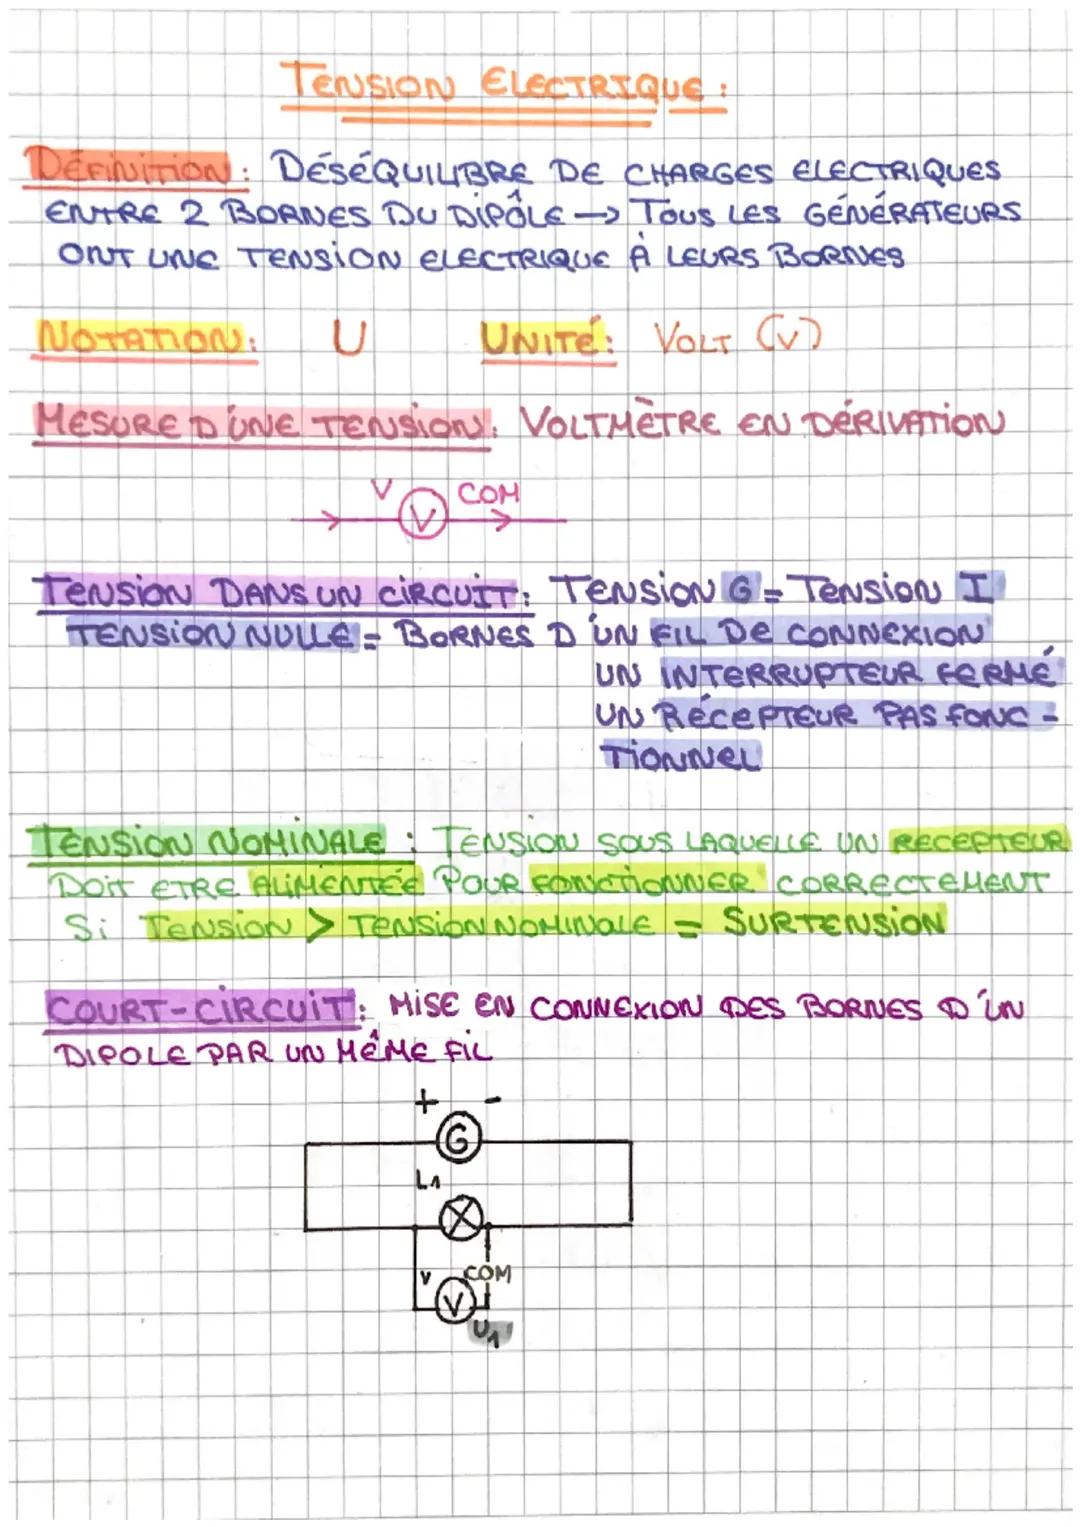 TENSION ELECTRIQUE :
DÉFINITION : DÉSÉQUILIBRE DE CHARGES ELECTRIQUES
ENTRE 2 BORNES DU DIPÔLE → TOUS LES GÉNÉRATEURS
ONT UNE TENSION ELECTRIQUE À LEURS BORNES
NOTATION : U UNITÉ : VOLT (V)
MESURE D'UNE TENSION : VOLTMÈTRE EN DÉRIVATION
V COM
V
TENSION DANS UN CIRCUIT : TENSION G = TENSION I
TENSION NULLE = BORNES D'UN FIL DE CONNEXION
UN INTERRUPTEUR FERMÉ
UN RÉCEPTEUR PAS FONC -
TIONNEL
TENSION NOMINALE : TENSION SOUS LAQUELLE UN RECEPTEUR
DOIT ETRE ALIMENTÉE POUR FONCTIONNER CORRECTEMENT
Si TENSION > TENSION NOMINALE = SURTENSION
COURT-CIRCUIT : MISE EN CONNEXION DES BORNES D'UN
DIPOLE PAR UN MÊME FIL
+ -
G
L1
V COM
V
U1